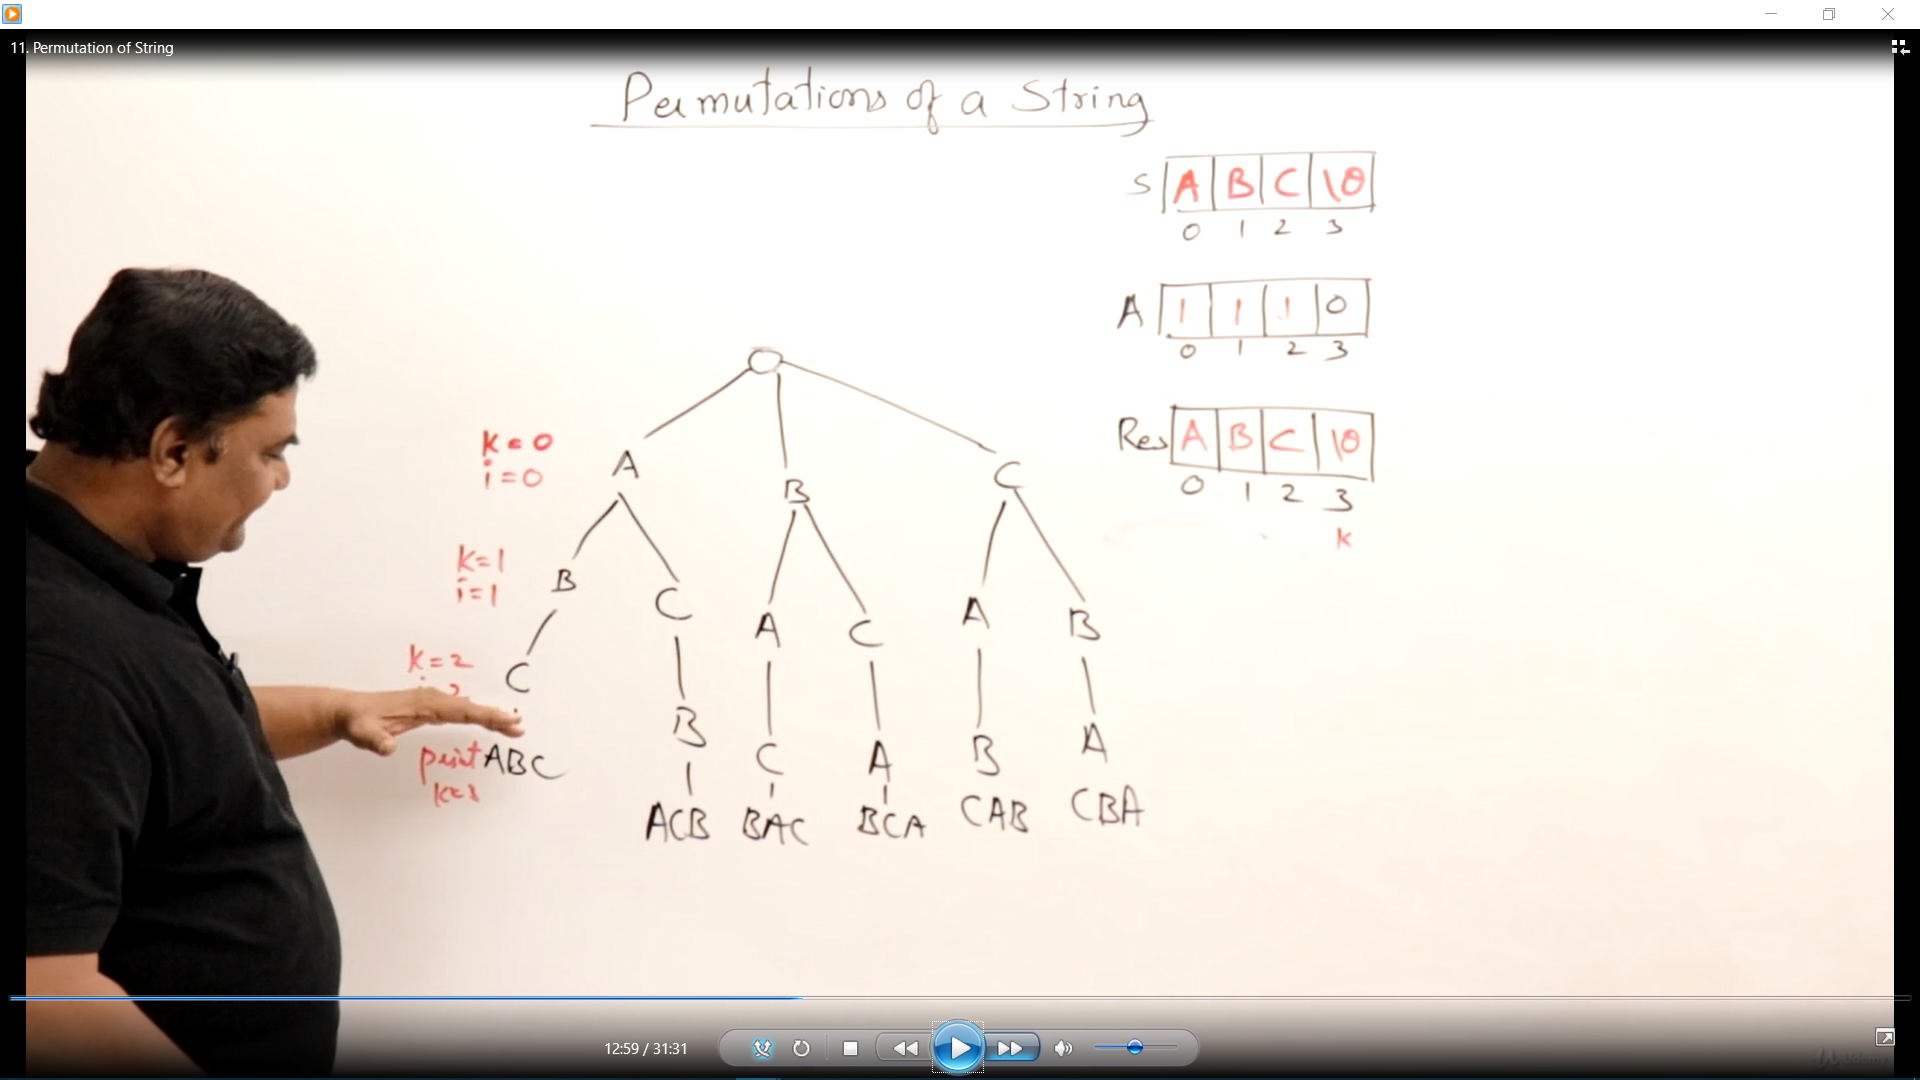 11. Permutation of String
Permutations of a String
S A B C \0
0 1 2 3
A 1 1 1 0
0 1 2 3
Res A B C \0
0 1 2 3
k
k=0
i=0
A B C
k=1
i=1
B C A C A B
k=2
C B C A B A
print ABC
k=3
ACB BAC BCA CAB CBA
12:59 / 31:31
Udemy